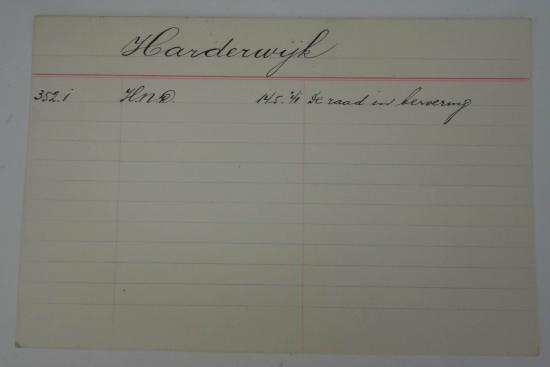 Harderwijk
352.i H.n.D. 14.5.'/1 De raad in beroering